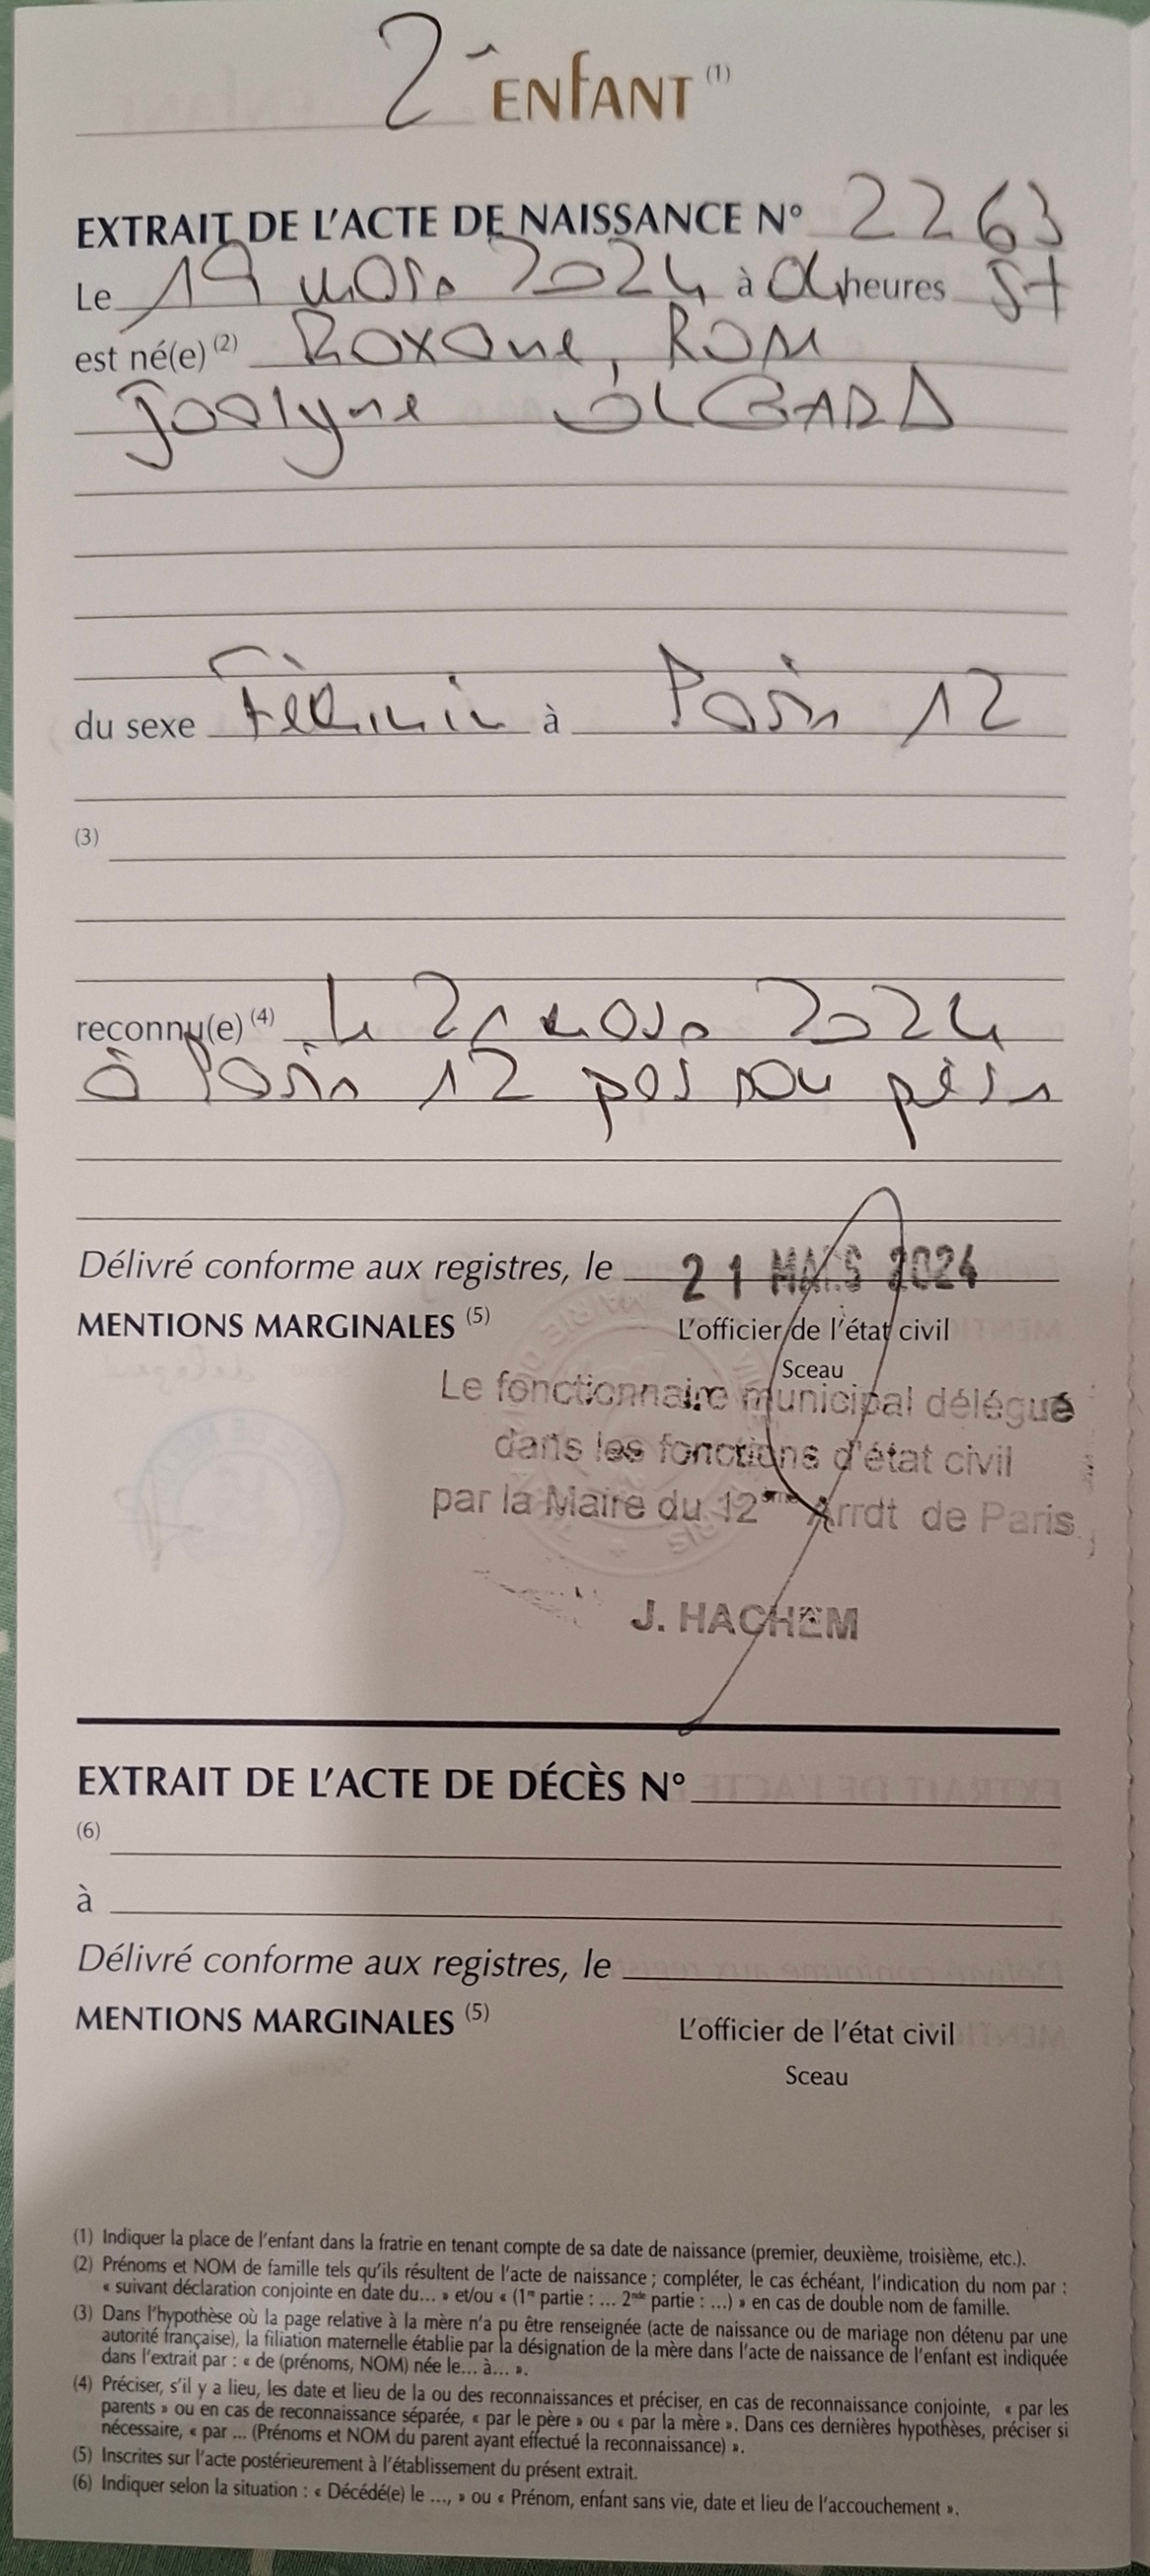 2e ENFANT (1)
EXTRAIT DE L'ACTE DE NAISSANCE N° 2263
Le 19 mars 2024 à heures
est né(e) (2) Roxane,
du sexe Féminin à Paris 12
(3)
reconnu(e) (4) le 21 mars 2024
à Paris 12 par son père
Délivré conforme aux registres, le 21 MARS 2024
MENTIONS MARGINALES (5) L'officier de l'état civil
Sceau
Le fonctionnaire municipal délégué
dans les fonctions d'état civil
par la Maire du 12ème Arrdt de Paris
J. HACHEM
EXTRAIT DE L'ACTE DE DÉCÈS N°
(6)
à
Délivré conforme aux registres, le
MENTIONS MARGINALES (5) L'officier de l'état civil
Sceau
(1) Indiquer la place de l'enfant dans la fratrie en tenant compte de sa date de naissance (premier, deuxième, troisième, etc.).
(2) Prénoms et NOM de famille tels qu'ils résultent de l'acte de naissance ; compléter, le cas échéant, l'indication du nom par :
« suivant déclaration conjointe en date du... » et/ou « (1re partie : ... 2nde partie : ...) » en cas de double nom de famille.
(3) Dans l'hypothèse où la page relative à la mère n'a pu être renseignée (acte de naissance ou de mariage non détenu par une
autorité française), la filiation maternelle établie par la désignation de la mère dans l'acte de naissance de l'enfant est indiquée
dans l'extrait par : « de (prénoms, NOM) née le... à... ».
(4) Préciser, s'il y a lieu, les date et lieu de la ou des reconnaissances et préciser, en cas de reconnaissance conjointe, « par les
parents » ou en cas de reconnaissance séparée, « par le père » ou « par la mère ». Dans ces dernières hypothèses, préciser si
nécessaire, « par ... (Prénoms et NOM du parent ayant effectué la reconnaissance) ».
(5) Inscrites sur l'acte postérieurement à l'établissement du présent extrait.
(6) Indiquer selon la situation : « Décédé(e) le ..., » ou « Prénom, enfant sans vie, date et lieu de l'accouchement ».